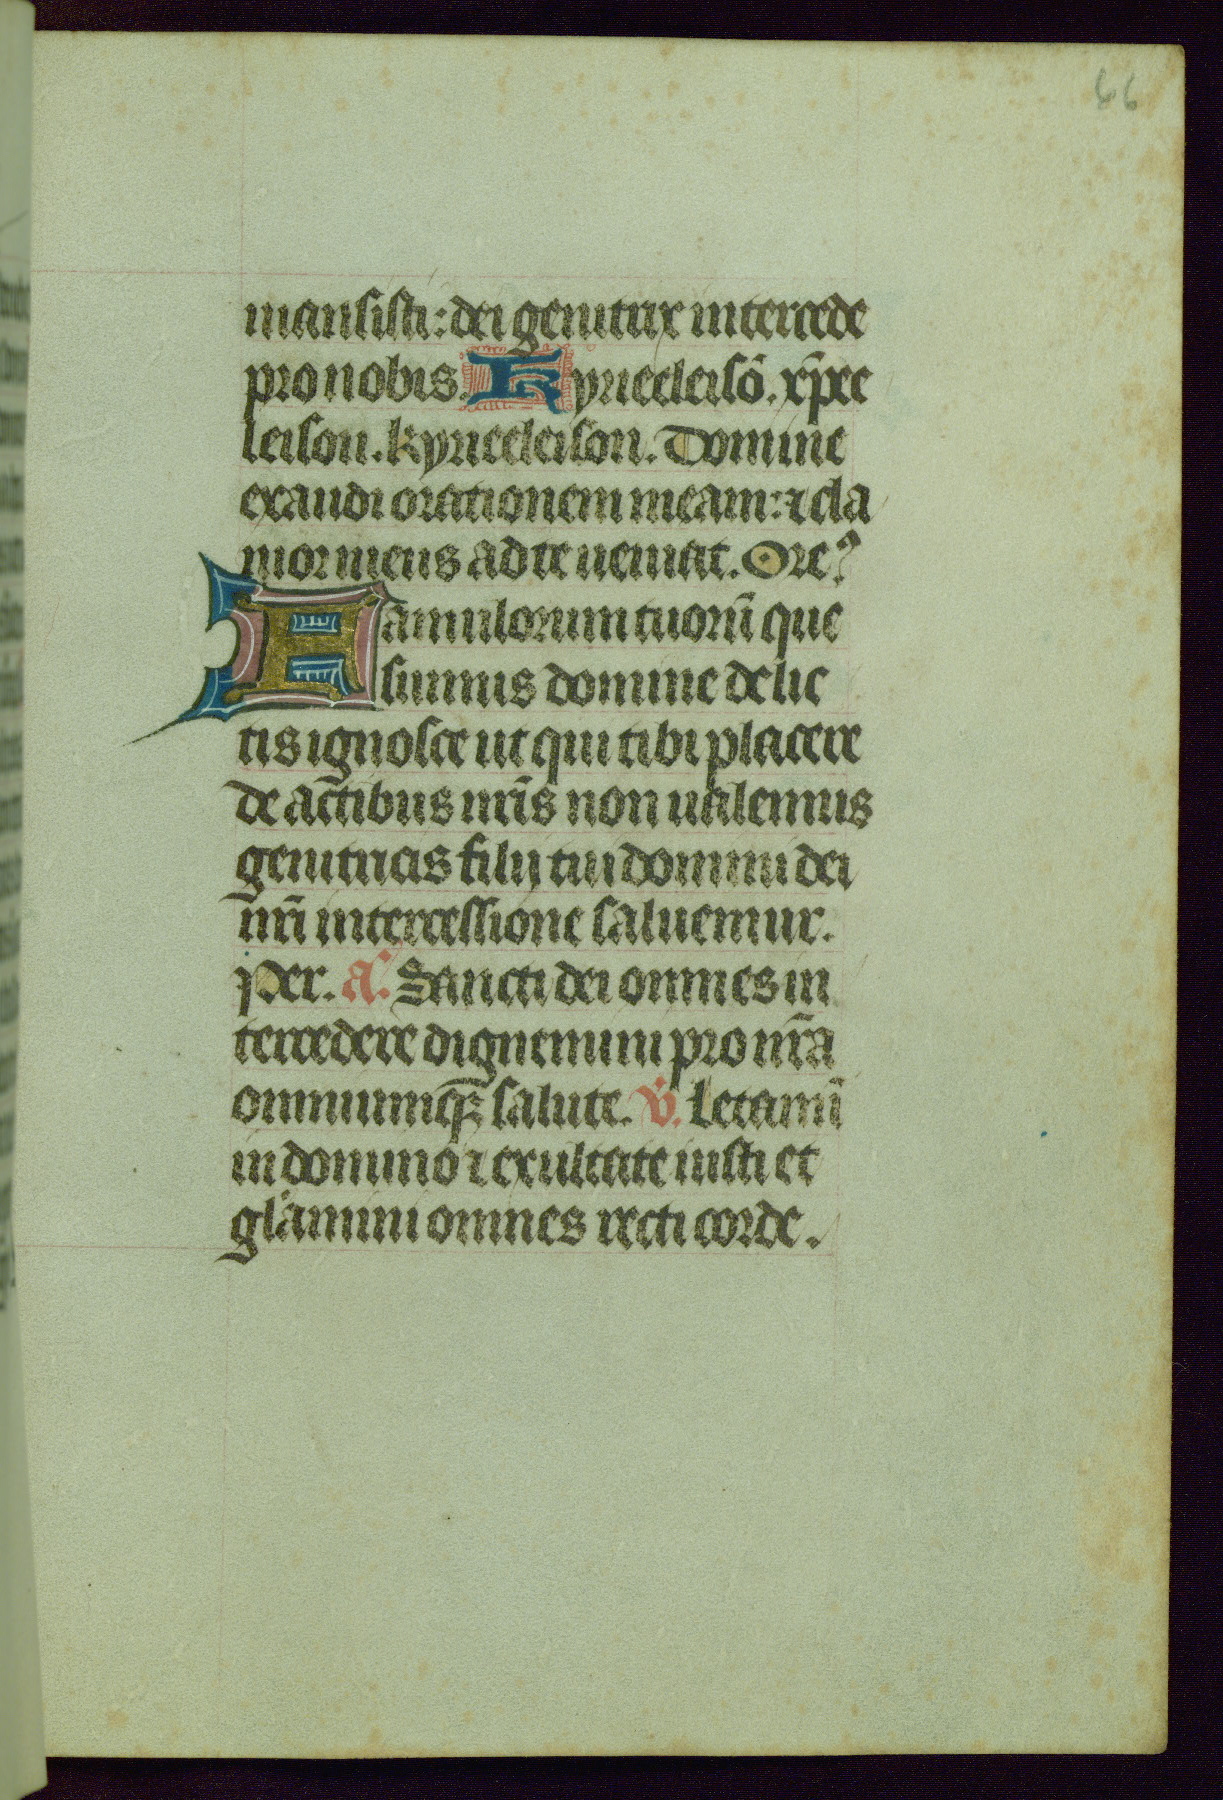 66
mansisti: dei genitrix intercede
pro nobis. Kyrieeleisō. xp̄ee
leison. kyrieeleison. Domine
exaudi orationem meam: ⁊ cla
mor meus ad te ueniat. Ore
Famulorum tuorū que
sumus domine delic
tis ignosce ut qui tibi placere
de actibus nr̄is non ualemus
genitricis filij tui domini dei
nr̄i intercessione saluemur.
Per. a. Sancti dei omnes in
tercedere dignemini pro nr̄a
omniumqꝫ salute. v. Letamī
in domino ⁊ exultate iusti et
gl̄amini omnes recti corde.